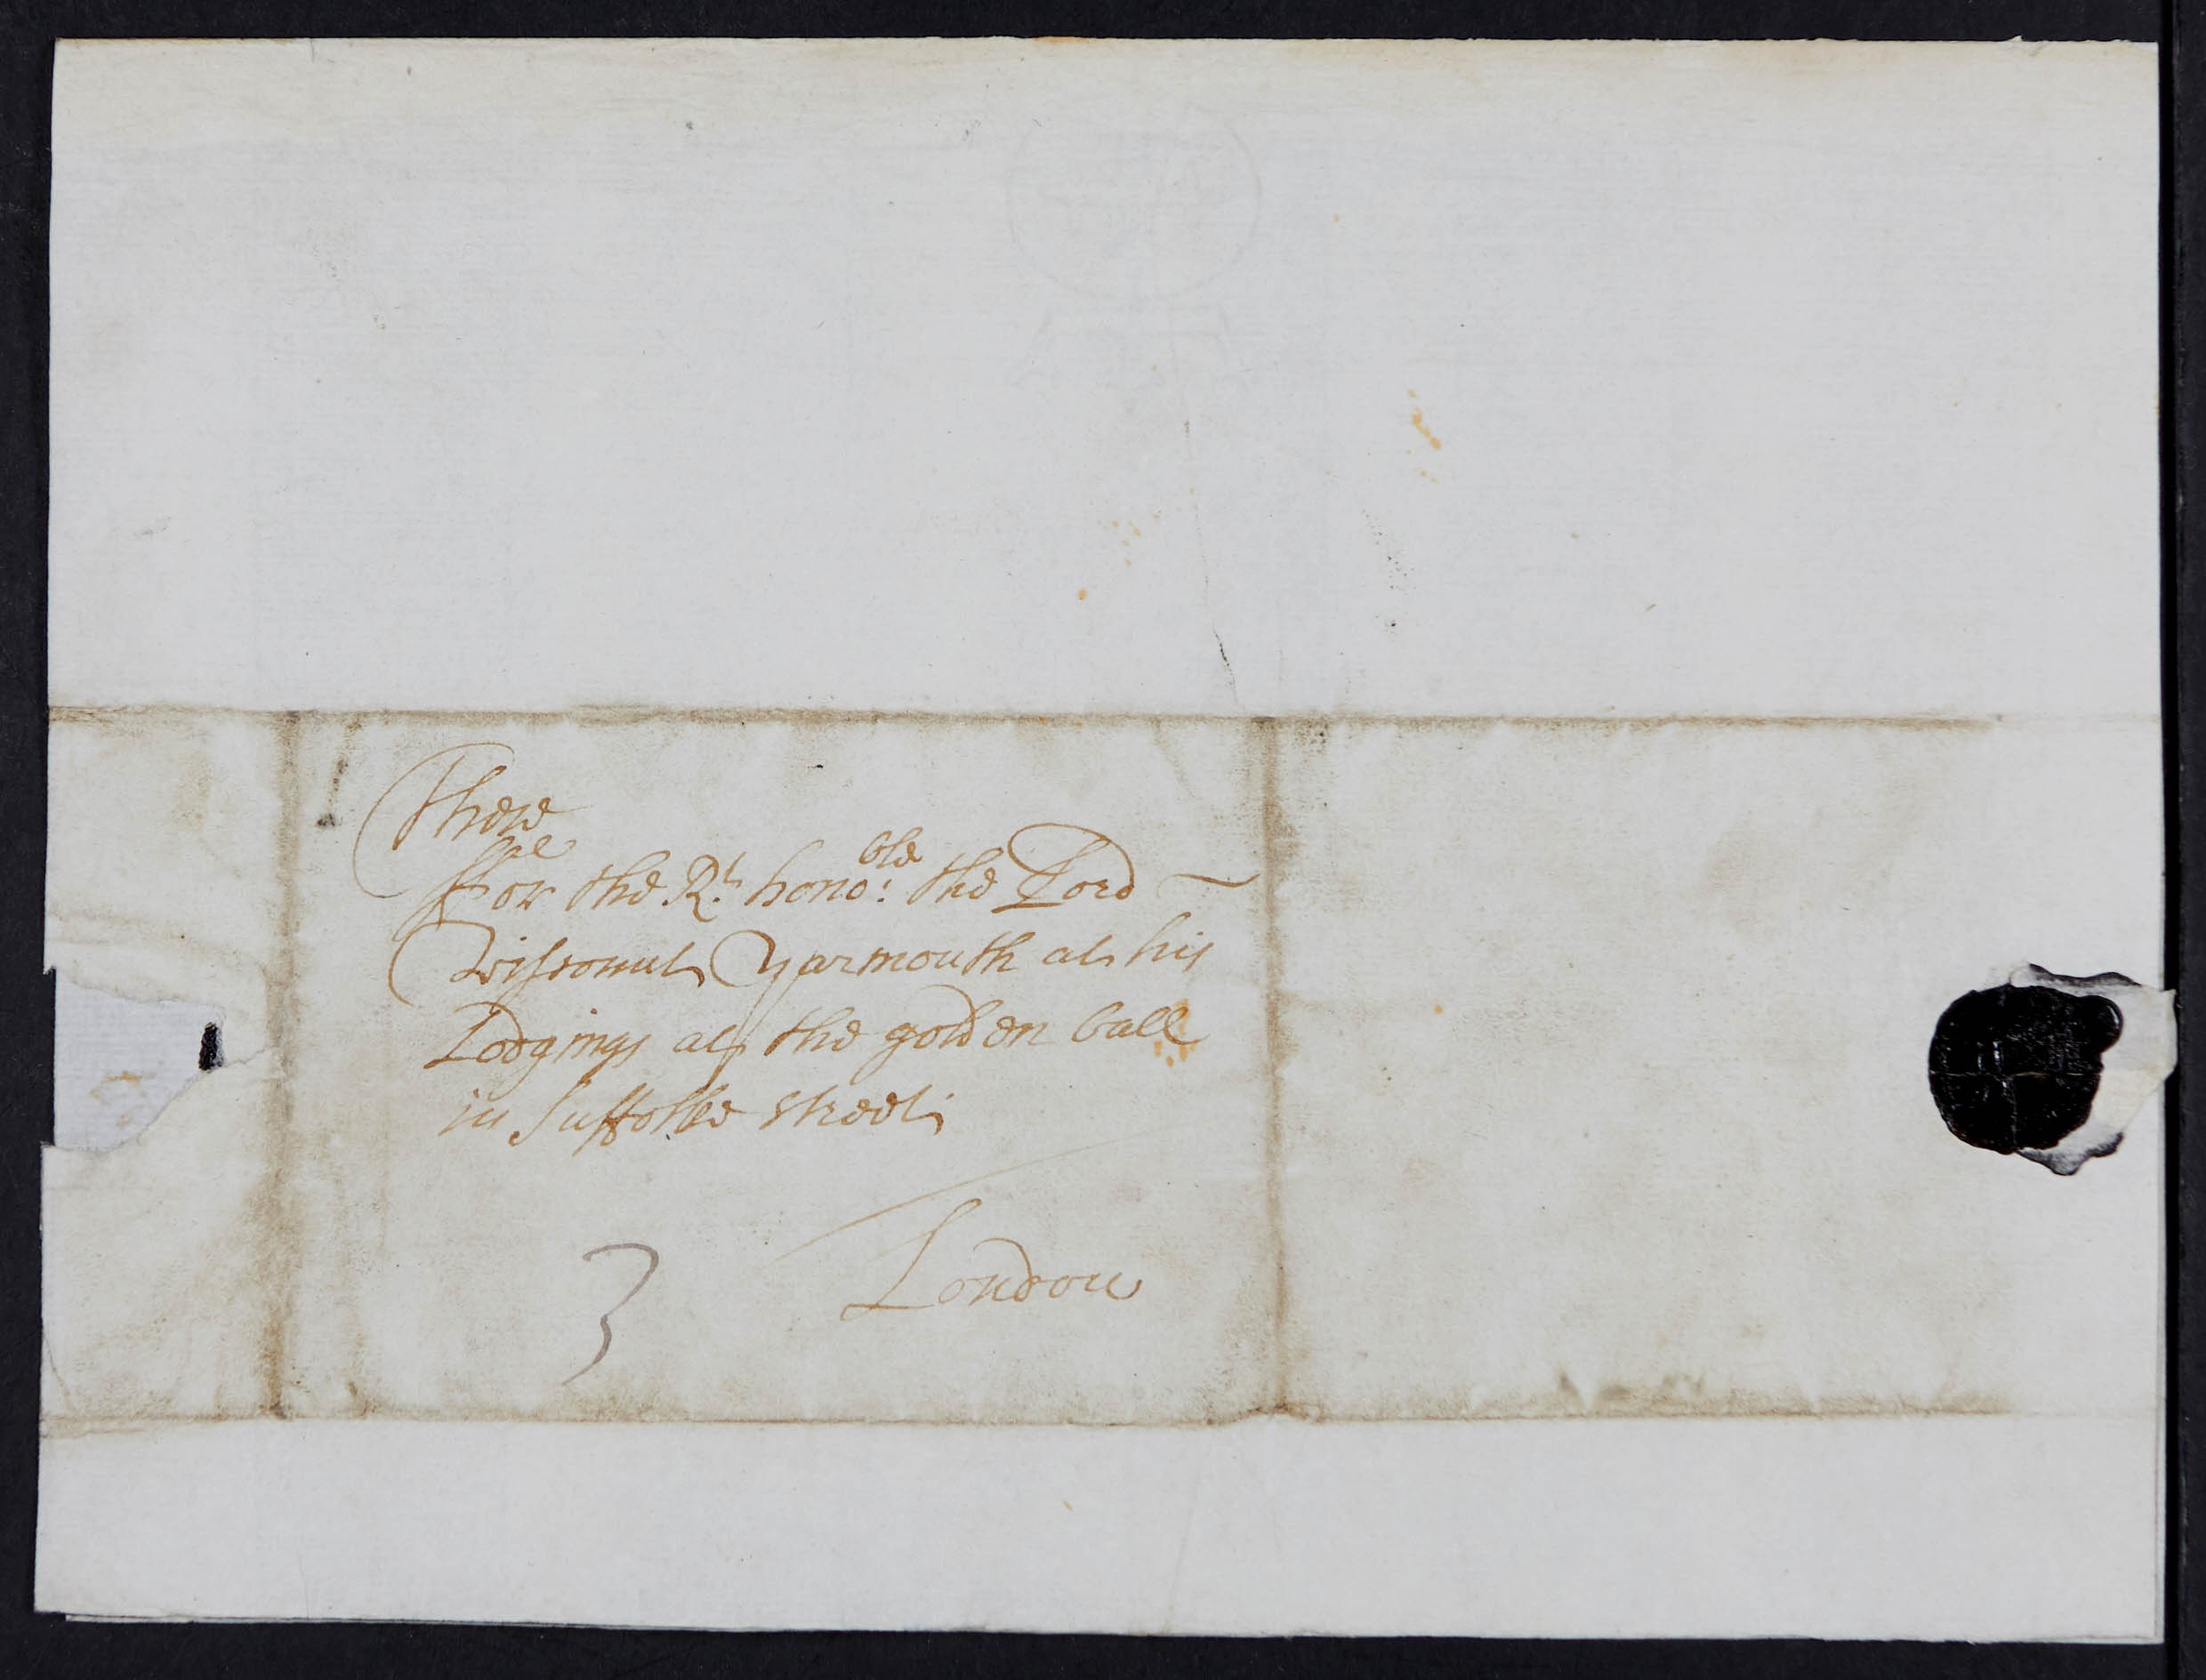 These
ffor the Rt. hono:ble the Lord
Viscount Yarmouth at his
Lodgings at the golden ball
in Suffolke street
London
3